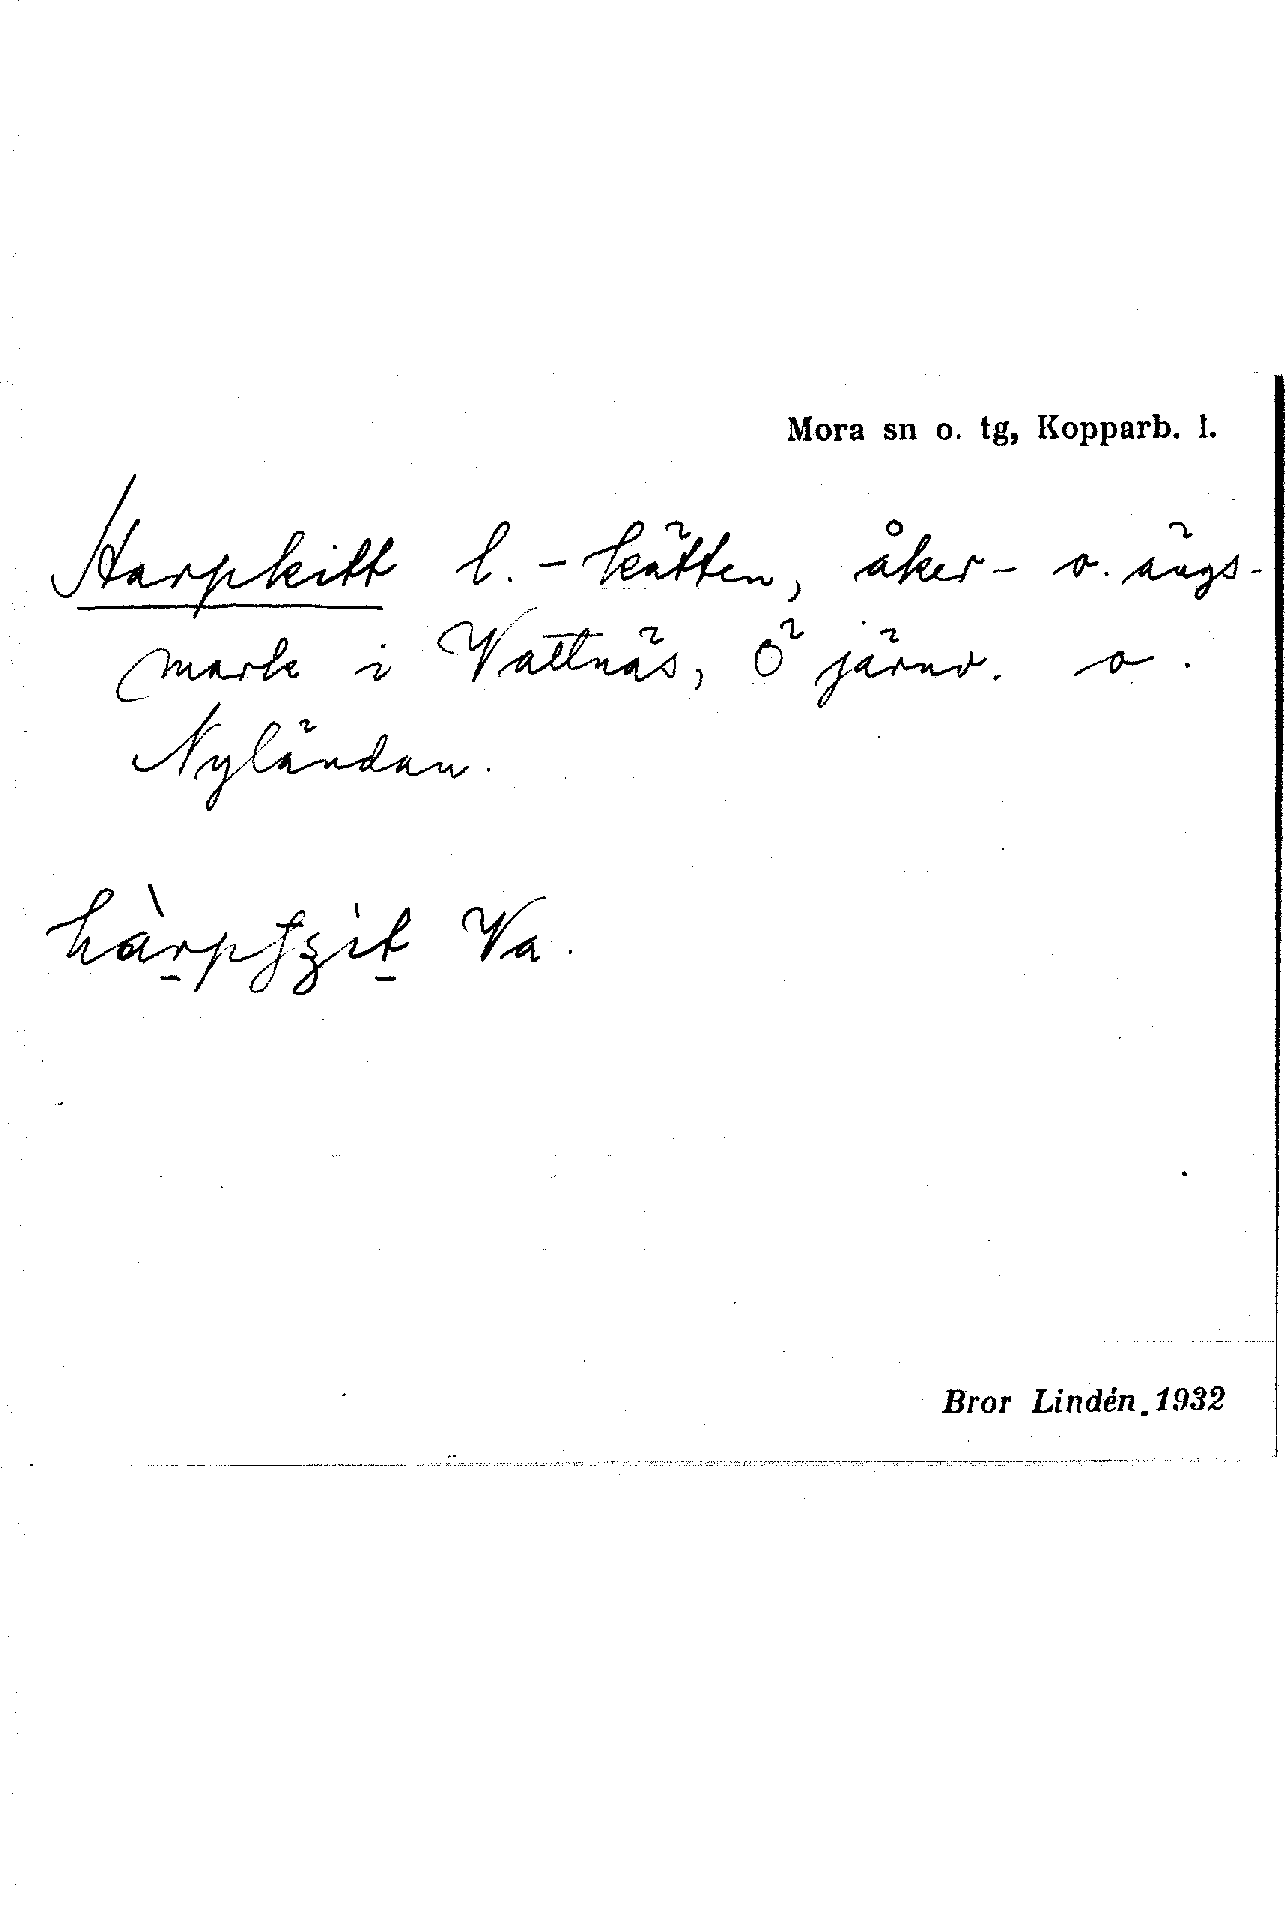 Mora sn o. tg, Kopparb. l.
Harpkitt l. -kätten, åker- o. ängs-
mark i Vattnäs, Ö järnv. o.
Nyländan.
Va.
Bror Lindén. 1932